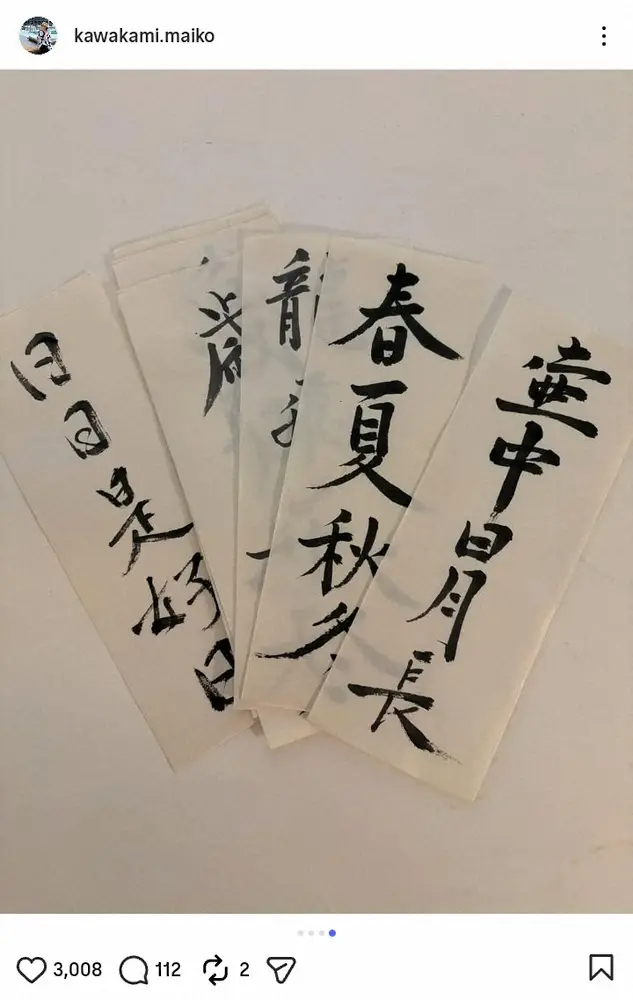 kawakami.maiko
壷中日月長
春夏秋冬
龍
日日是好日
3,008
112
2